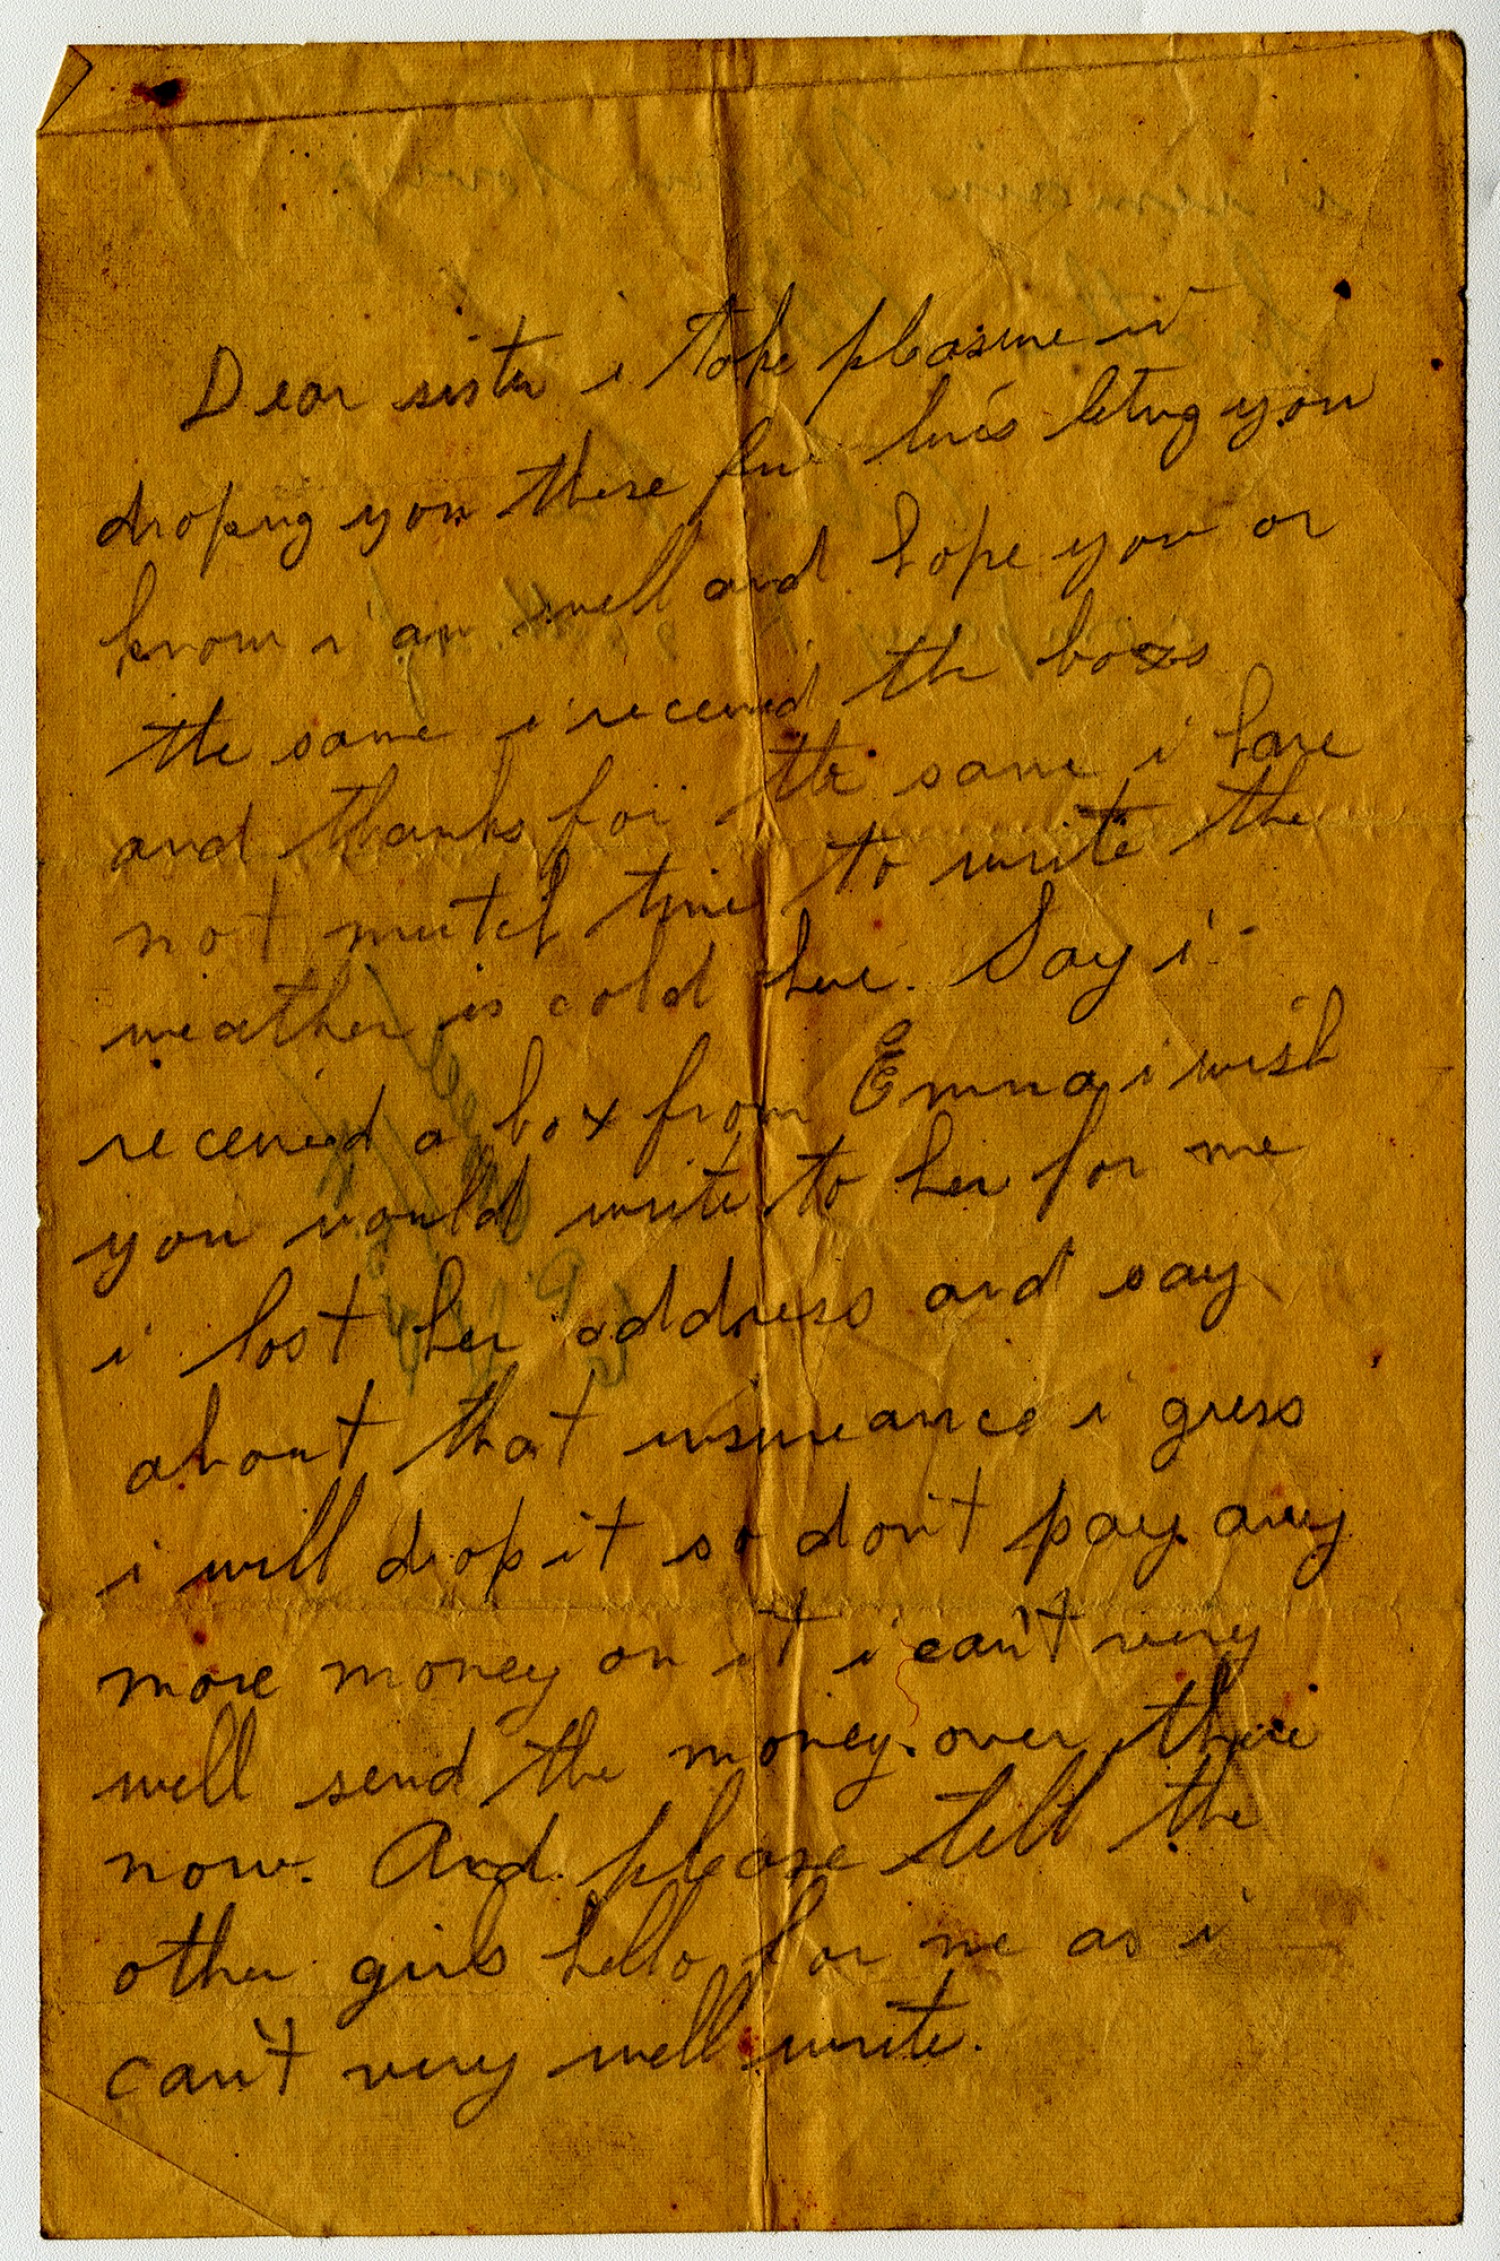 Dear sister i take pleasure in
droping you these few lines letng you
know i am well and hope you or
the same i received the boxes
and thanks for the same i have
not mutch time to write the
weather is cold here. Say i
received a box from Emma i wish
you would write to her for me
i lost her address and say
about that insureance i guess
i will drop it so don't pay any
more money on it i can't very
well send the money over there
now. And please tell the
other girls hello for me as i
can't very well write.